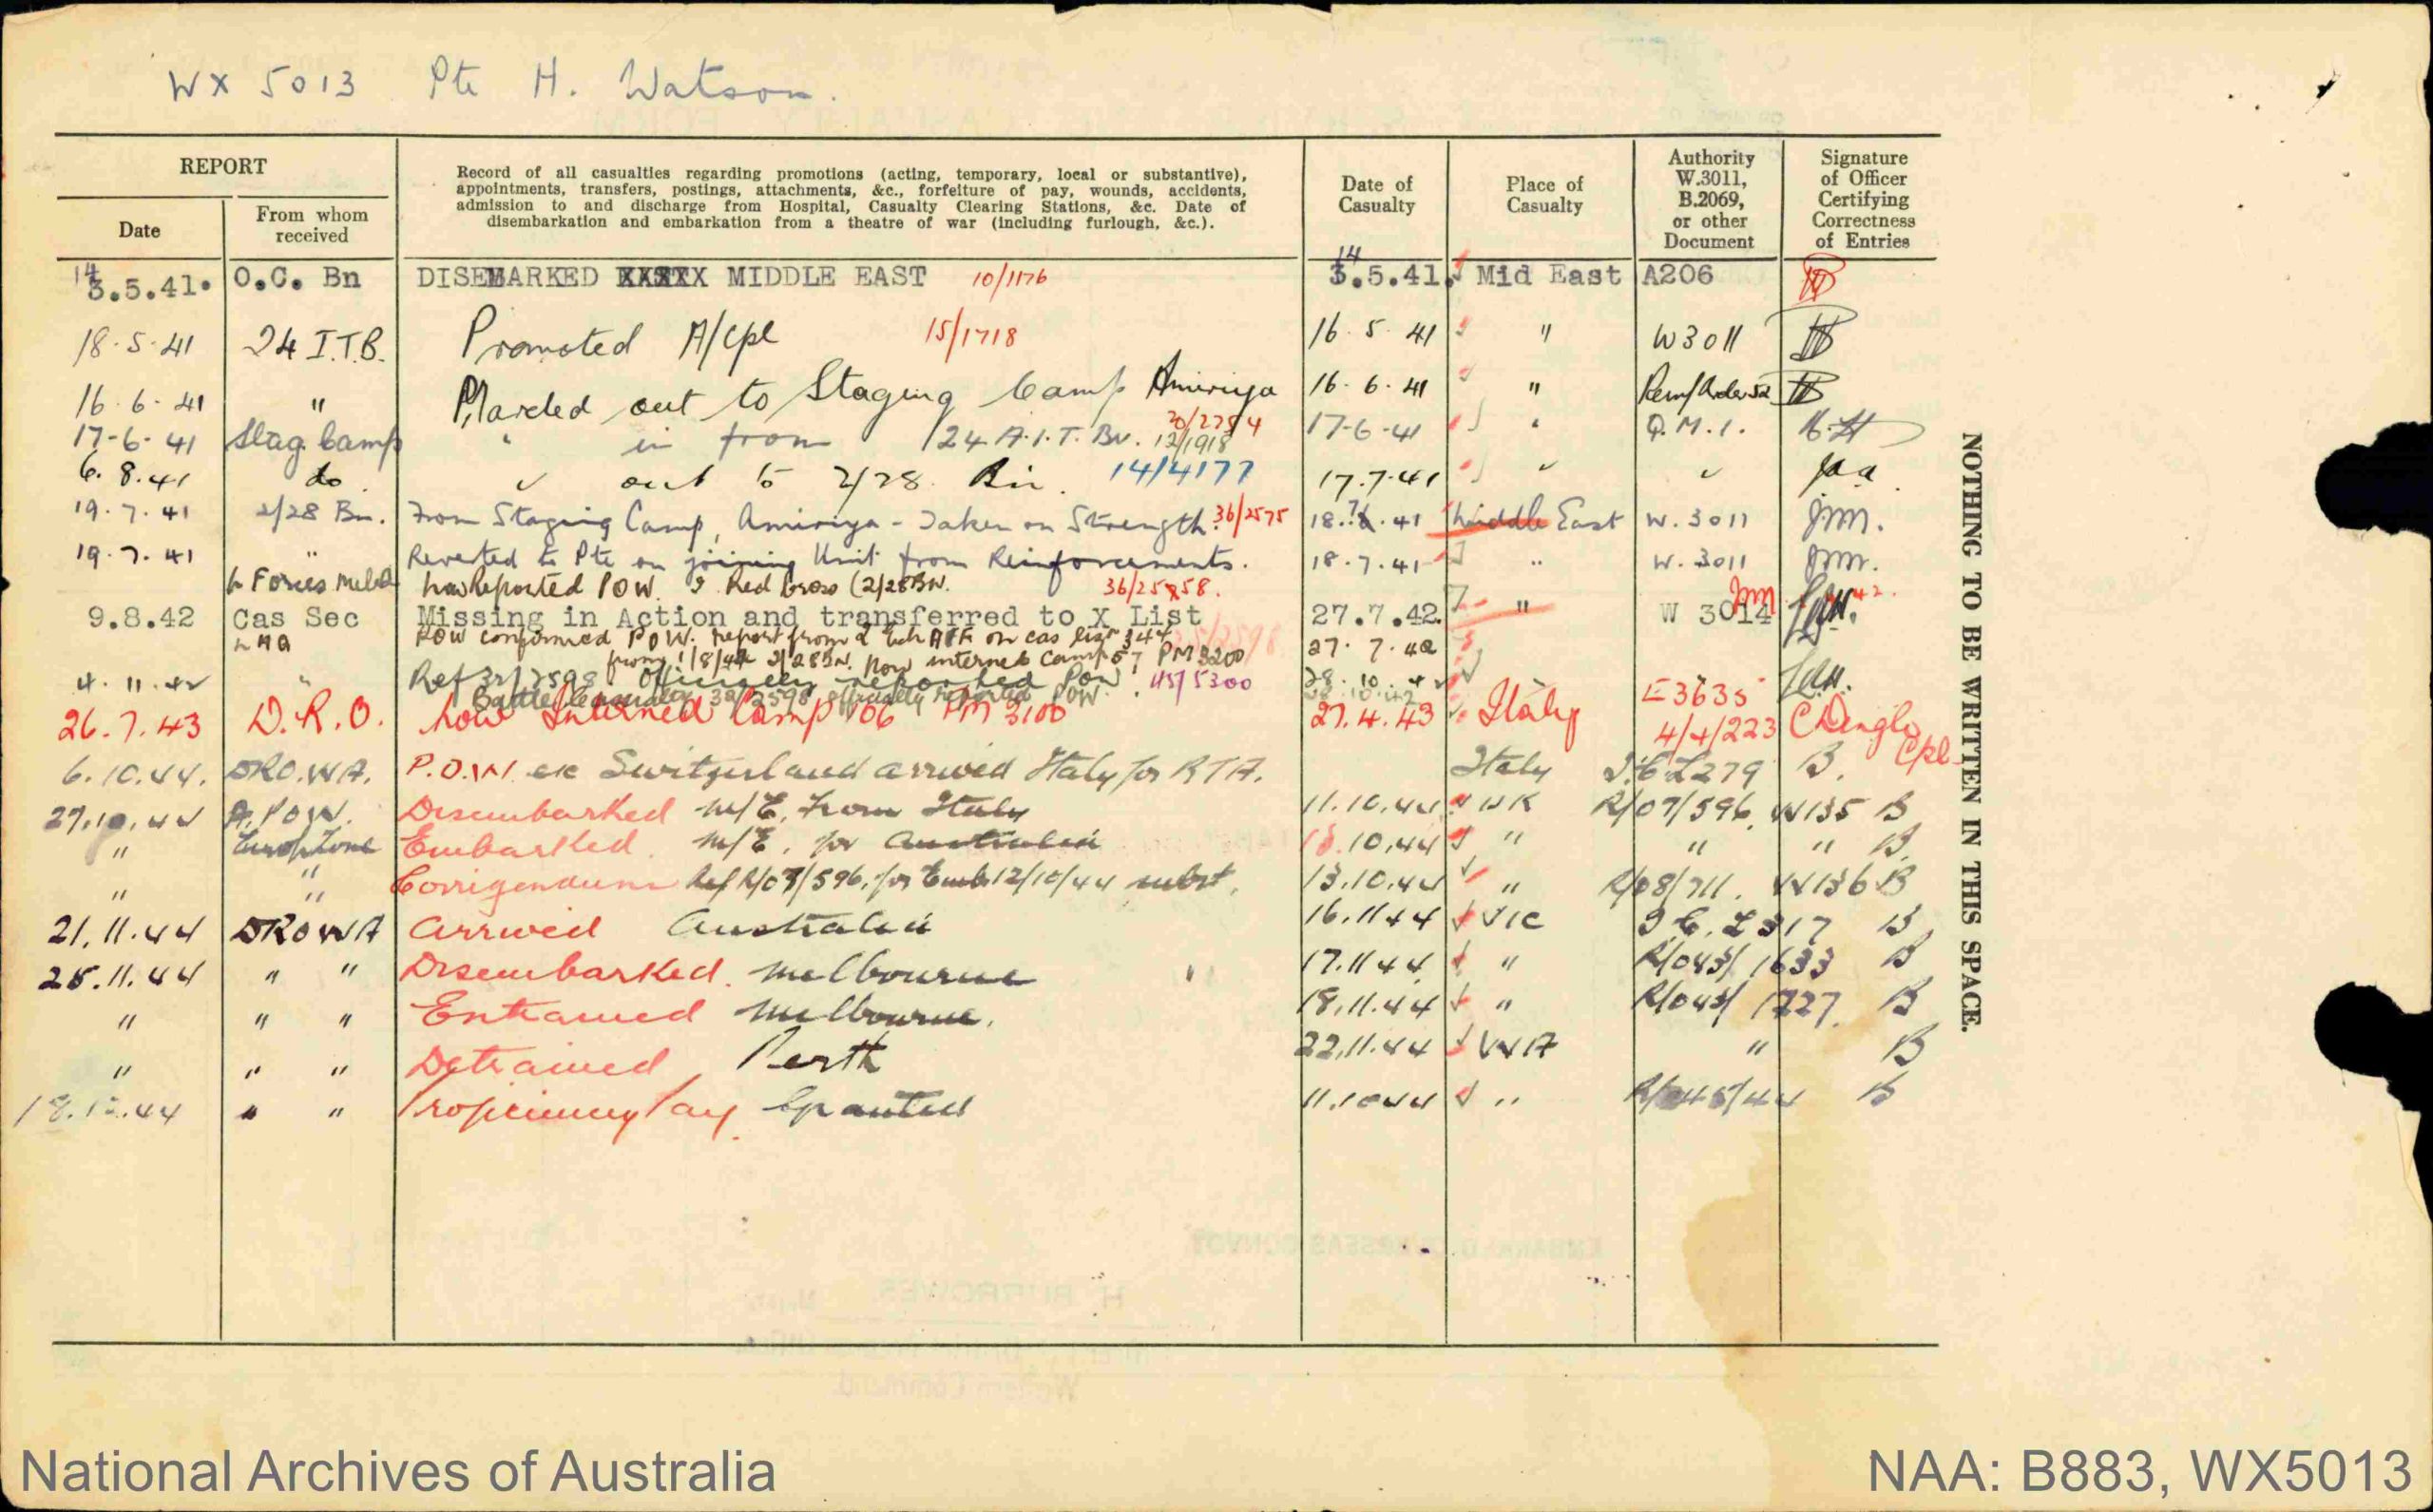 WX 5013 Pte H. Watson.
REPORT
Date
From whom received
Record of all casualties regarding promotions (acting, temporary, local or substantive),
appointments, transfers, postings, attachments, &c., forfeiture of pay, wounds, accidents,
admission to and discharge from Hospital, Casualty Clearing Stations, &c. Date of
disembarkation and embarkation from a theatre of war (including furlough, &c.).
Date of Casualty
Place of Casualty
Authority W.3011, B.2069, or other Document
Signature of Officer Certifying Correctness of Entries
14 3.5.41. O.C. Bn DISEMBARKED MIDDLE EAST 10/1176 14 3.5.41. Mid East A206
18.5.41 24 I.T.B. Promoted A/Cpl 15/1718 16.5.41 " W3011
16.6.41 " Marched out to Staging Camp Amiriya 16.6.41 "
17-6-41 Stag. Camp " in from 24 A.I.T. Bn. 20/2754 12/1918 17-6-41 " Q.M.1.
6.8.41 do " out to 2/28 Bn. 14/4177 17.7.41 " "
19.7.41 2/28 Bn. From Staging Camp, Amiriya - Taken on Strength. 36/2575 18.7.41 Middle East W.3011 JMM.
19.7.41 " Reverted to Pte on joining Unit from Reinforcements. 18.7.41 " W.3011
L Forces Melb now Reported POW. Red Cross (2/28 BN. 36/25858.
9.8.42 Cas Sec Missing in Action and transferred to X List 27.7.42. " W 3014
LHQ POW confirmed P.O.W. report from 2 Ech AIF on cas list 344 27.7.42
from 1/8/42 2/28 BN. Now interned Camp 57 PM 3200
4.11.42 " Ref 32/2598 officially reported POW 45/5300 28.10.42
Battle Casualty 32/2598 officially reported POW. 28.10.42 E3635
26.7.43 D.R.O. now Interned Camp 106 PM 3100 27.4.43 Italy 4/4/223 C Dingle Cpl
6.10.44. DRO.WA. P.O.W. ex Switzerland arrived Italy for RTA. Italy L279 B.
27.10.44 A.POW. Disembarked M/E. from Italy 11.10.44 R/07/596. W135 B
" Embarked M/E. for Australia .10.44 " " " B
" " Corrigendum Ref R/07/596. for Emb. 12/10/44 subst. 13.10.44 " R/08/711. W136 B
21.11.44 DROWA Arrived Australia 16.11.44 VIC L317 B
25.11.44 " " Disembarked. Melbourne 17.11.44 " R/043/1633 B
" " " Entrained Melbourne. 18.11.44 " R/043/1727. B
" " " Detrained Perth 22.11.44 WA " B
18.12.44 " " Proficiency Pay Granted 11.10.44 " B
NOTHING TO BE WRITTEN IN THIS SPACE.
National Archives of Australia
NAA: B883, WX5013